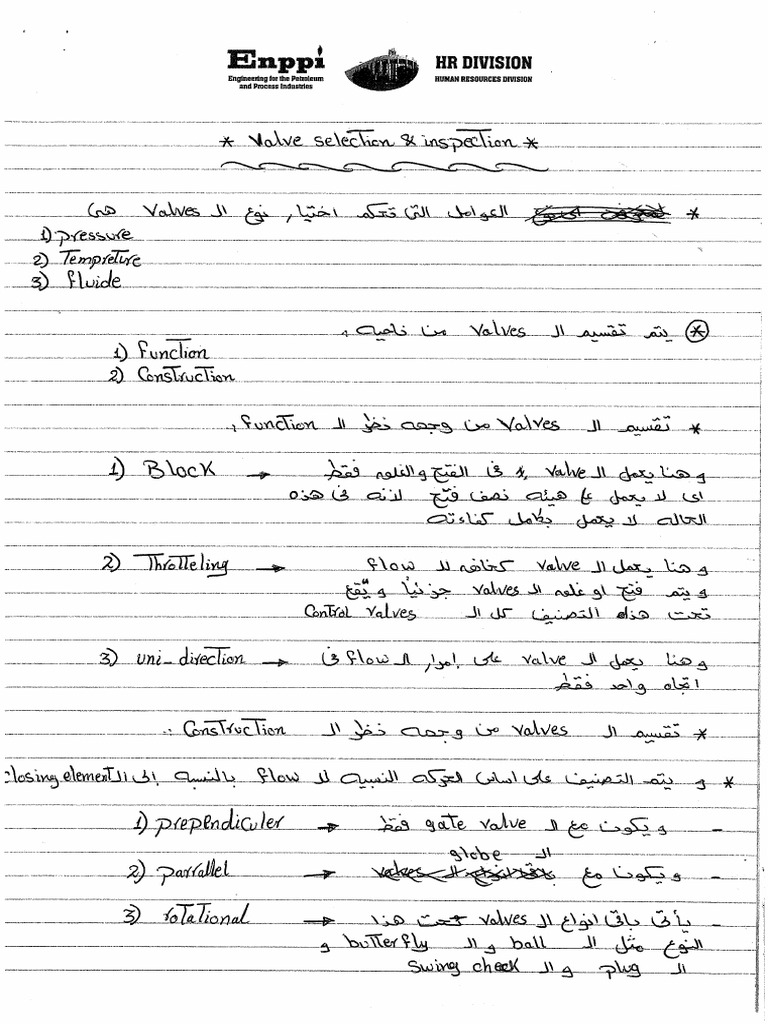 Enppi
Engineering for the Petroleum
and Process Industries
HR DIVISION
HUMAN RESOURCES DIVISION
* Valve selection & inspection *
* العوامل التى تحكم اختيار نوع الـ Valves هى
1) pressure
2) Tempreture
3) fluide
* يتم تقسيم الـ valves من ناحيه :
1) function
2) Construction
* تقسيم الـ valves من وجهه نظر الـ function :
1) BLOCK → وهنا يعمل الـ valve فى الفتح والغلق فقط
اى لا يعمل على هيئه نصف فتح لانه فى هذه
الحاله لا يعمل بكامل كفاءته
2) Throtteling → وهنا يعمل الـ valve كخافض للـ flow
ويتم فتح او غلق الـ valves جزئياً ويقع
تحت هذا التصنيف كل الـ Control valves
3) uni-direction → وهنا يعمل الـ valve على إمرار الـ flow فى
اتجاه واحد فقط
* تقسيم الـ valves من وجهه نظر الـ Construction :
* و يتم التصنيف على اساس الحركه النسبيه للـ flow بالنسبه إلى الـ closing element
1) prependiculer → - ويكون مع الـ gate valve فقط
2) parrallel → - ويكون مع الـ globe
3) rotational → - يأتى باقى انواع الـ valves تحت هذا
النوع مثل الـ ball والـ butterfly و
الـ plug والـ swing check